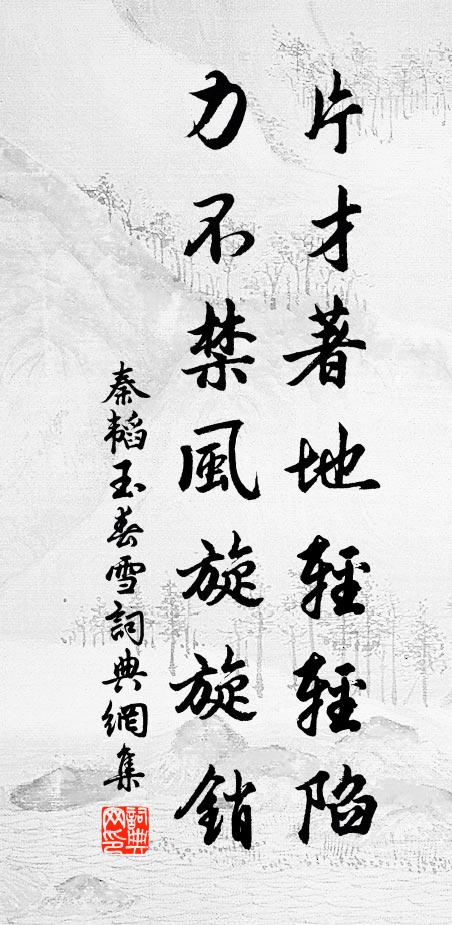 片才著地輕輕陷
力不禁風旋旋銷
秦韜玉春雪詞典網集
詞典
网印